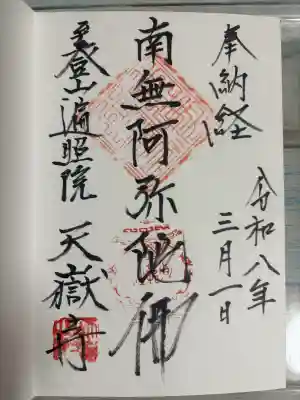 奉納経
令和八年
三月一日
南無阿弥陀佛
登山遍照院
天嶽寺